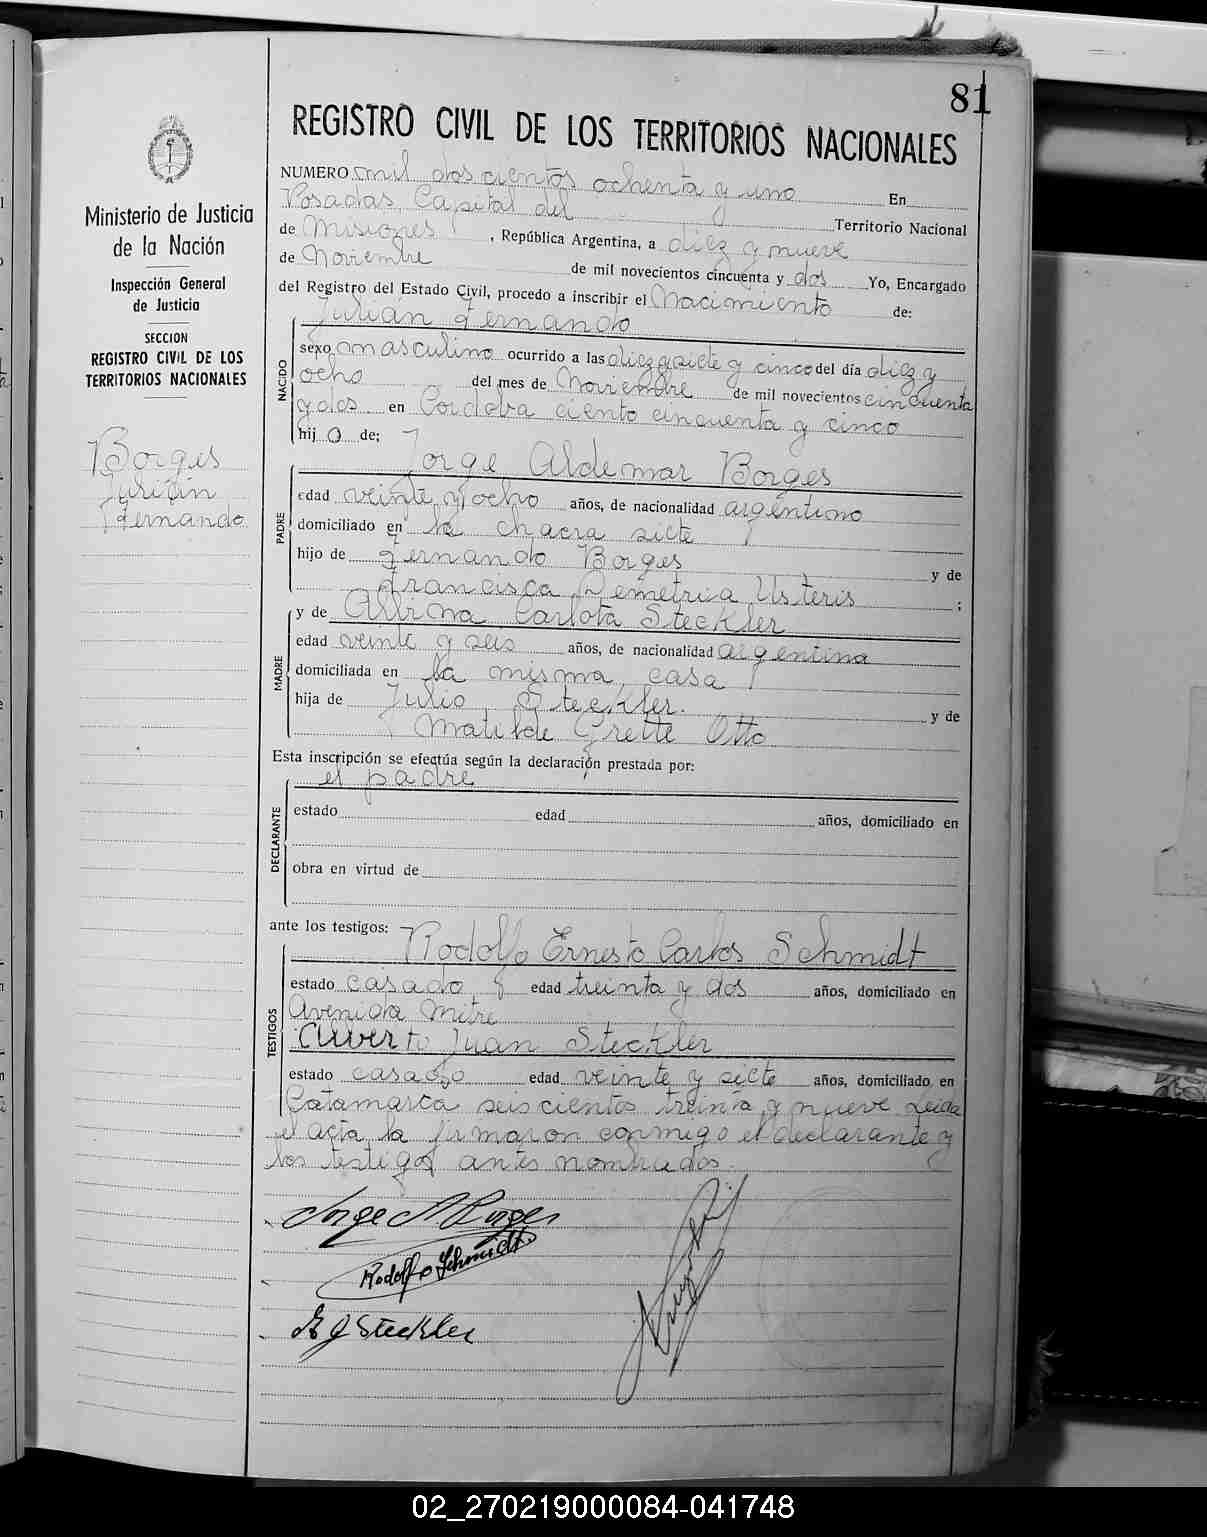 81
REGISTRO CIVIL DE LOS TERRITORIOS NACIONALES
Ministerio de Justicia
de la Nación
Inspección General
de Justicia
SECCION
REGISTRO CIVIL DE LOS
TERRITORIOS NACIONALES
Borges
Julián
Fernando
NUMERO mil dos cientos ochenta y uno En
Posadas, Capital del Territorio Nacional
de Misiones, República Argentina, a diez y nueve
de Noviembre de mil novecientos cincuenta y dos Yo, Encargado
del Registro del Estado Civil, procedo a inscribir el Nacimiento de:
Julián Fernando
NACIDO
sexo masculino ocurrido a las diez y siete y cinco del día diez y
ocho del mes de Noviembre de mil novecientos cincuenta
y dos en Cordoba ciento cincuenta y cinco
hij o de:
Jorge Aldemar Borges
PADRE
edad veinte y ocho años, de nacionalidad argentino
domiciliado en la chacra siete
hijo de Fernando Borges y de
Francisca Demetria Usteris ;
y de Carlota Steckler
MADRE
edad veinte y seis años, de nacionalidad argentina
domiciliada en la misma casa
hija de Julio Steckler. y de
Matilde Grette Otto
Esta inscripción se efectúa según la declaración prestada por:
el padre
DECLARANTE
estado edad años, domiciliado en
obra en virtud de
ante los testigos: Rodolfo Ernesto Carlos Schmidt
TESTIGOS
estado casado edad treinta y dos años, domiciliado en
Avenida Mitre
Juan Steckler
estado casado edad veinte y siete años, domiciliado en
Catamarca seis cientos treinta y nueve Leida
el acta la firmaron conmigo el declarante y
los testigos antes nombrados.
Jorge A Borges
Rodolfo Schmidt
J Steckler
02_270219000084-041748